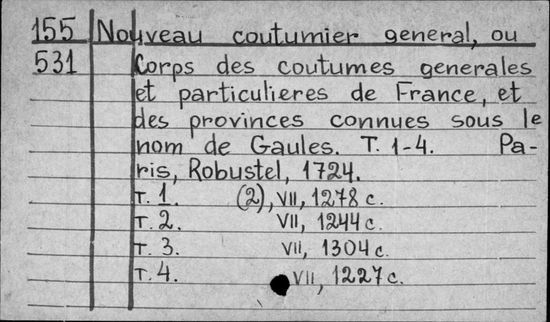 155 Nouveau coutumier general, ou
531 Corps des coutumes generales
et particulieres de France, et
des provinces connues sous le
nom de Gaules. T. 1-4. Pa-
ris, Robustel, 1724.
T. 1. (2), VII, 1278 c.
T. 2. VII, 1244 c.
T. 3. VII, 1304 c.
T. 4. VII, 1227 c.